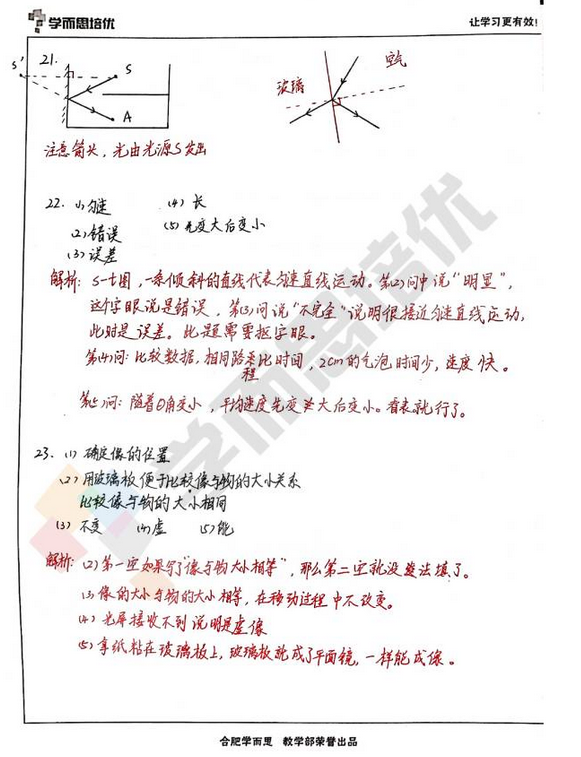 学而思培优
让学习更有效!
21.
S'
S
A
玻璃
空气
注意箭头,光由光源S发出
22. (1) 匀速 (4) 长
(2) 错误 (5) 先变大后变小
(3) 误差
解析: s-t图,一条倾斜的直线代表匀速直线运动。第(2)问中说“明显”,
这个字眼说是错误,第(3)问说“不完全”说明很接近匀速直线运动,
此时是误差。此题需要抠字眼。
第(4)问: 比较数据,相同路程比时间,2cm的气泡时间少,速度快。
第(5)问: 随着θ角变小,平均速度先变大后变小。看表就行了。
23. (1) 确定像的位置
(2) 用玻璃板便于比较像与物的大小关系
比较像与物的大小相同
(3) 不变 (4) 虚 (5) 能
解析: (2) 第一空如果写了“像与物大小相等”,那么第二空就没办法填了。
(3) 像的大小与物的大小相等,在移动过程中不改变。
(4) 光屏接收不到说明是虚像
(5) 拿纸粘在玻璃板上,玻璃板就成了平面镜,一样能成像。
学而思培优
合肥学而思 教学部荣誉出品